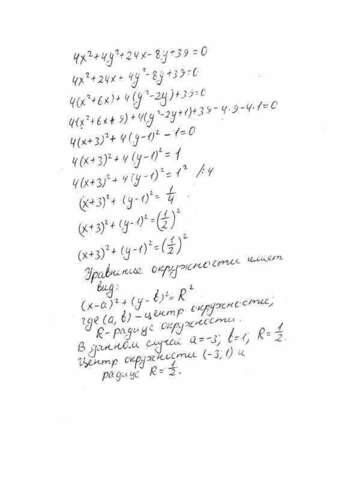 4x²+4y²+24x-8y+39=0
4x²+24x+4y²-8y+39=0
4(x²+6x)+4(y²-2y)+39=0
4(x²+6x+9)+4(y²-2y+1)+39-4·9-4·1=0
4(x+3)²+4(y-1)²-1=0
4(x+3)²+4(y-1)²=1
4(x+3)²+4(y-1)²=1² /:4
(x+3)²+(y-1)²=1/4
(x+3)²+(y-1)²=(1/2)²
(x+3)²+(y-1)²=(1/2)²
Уравнение окружности имеет
вид:
(x-a)²+(y-b)²=R²
где (a,b)-центр окружности,
R-радиус окружности.
В данном случае a=-3; b=1; R=1/2.
Центр окружности (-3,1) и
радиус R=1/2.